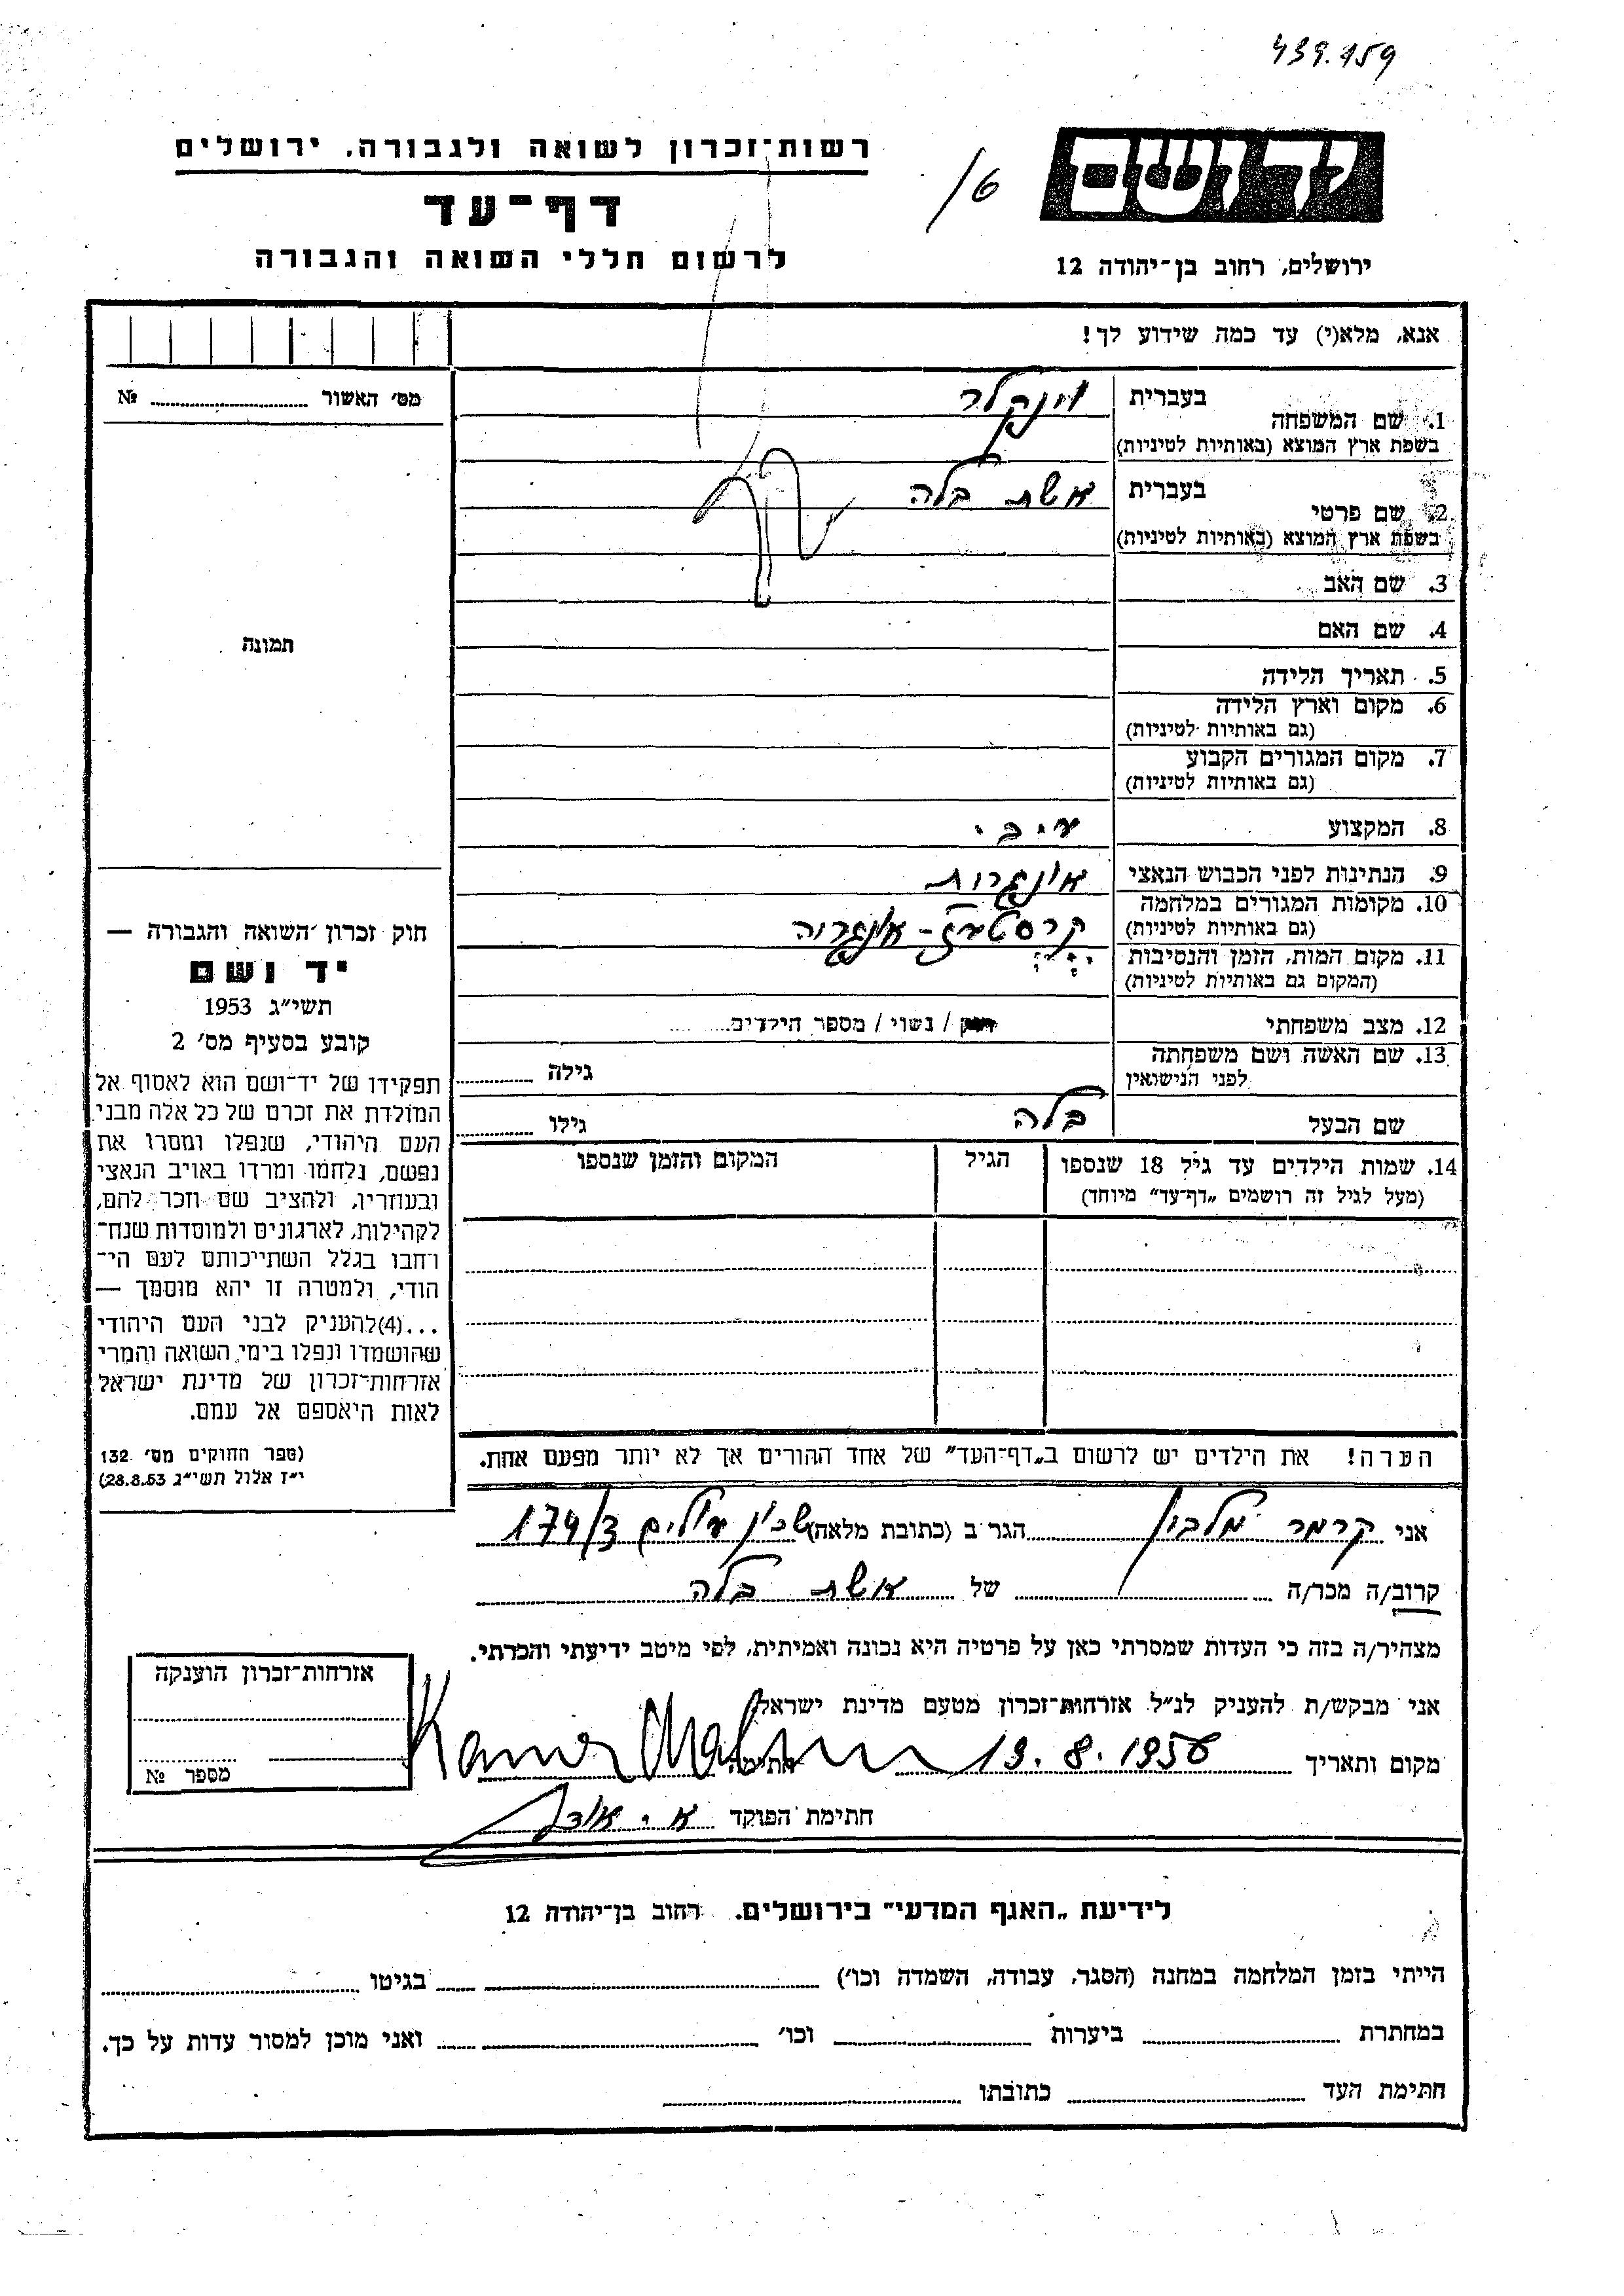 439.159
רשות־זכרון לשואה ולגבורה, ירושלים
דף־עד
לרשום חללי השואה והגבורה
ידושם
ירושלים, רחוב בן־יהודה 12
אנא, מלא(י) עד כמה שידוע לך!
מס׳ האשור № 
1. שם המשפחה בעברית וינקלר
בשפת ארץ המוצא (באותיות לטיניות)
2. שם פרטי בעברית אשת בלה
בשפת ארץ המוצא (באותיות לטיניות)
3. שם האב
4. שם האם
תמונה
5. תאריך הלידה
6. מקום וארץ הלידה
(גם באותיות לטיניות)
7. מקום המגורים הקבוע
(גם באותיות לטיניות)
8. המקצוע
9. הנתינות לפני הכבוש הנאצי אונגרית
10. מקומות המגורים במלחמה
(גם באותיות לטיניות) אונגריה
11. מקום המות, הזמן והנסיבות
(המקום גם באותיות לטיניות)
12. מצב משפחתי רווק / נשוי / מספר הילדים
13. שם האשה ושם משפחתה גילה
לפני הנישואין
שם הבעל בלה גילו
חוק זכרון השואה והגבורה —
יד ושם
תשי״ג 1953
קובע בסעיף מס׳ 2
תפקידו של יד־ושם הוא לאסוף אל
המולדת את זכרם של כל אלה מבני
העם היהודי, שנפלו ומסרו את
נפשם, נלחמו ומרדו באויב הנאצי
ובעוזריו, ולהציב שם וזכר להם,
לקהילות, לארגונים ולמוסדות שנח־
רחבו בגלל השתייכותם לעם הי־
הודי, ולמטרה זו יהא מוסמך —
...(4)להעניק לבני העם היהודי
שהושמדו ונפלו בימי השואה והמרי
אזרחות־זכרון של מדינת ישראל
לאות היאספם אל עמם.
(ספר החוקים מס׳ 132
י״ז אלול תשי״ג 28.8.53)
14. שמות הילדים עד גיל 18 שנספו הגיל המקום והזמן שנספו
(מעל לגיל זה רושמים „דף־עד״ מיוחד)
הערה! את הילדים יש לרשום ב„דף־העד״ של אחד ההורים אך לא יותר מפעם אחת.
אני קרמר הגר ב (כתובת מלאה) שכון עולים 174/3
קרוב/ה מכר/ה של אשת בלה
מצהיר/ה בזה כי העדות שמסרתי כאן על פרטיה היא נכונה ואמיתית, לפי מיטב ידיעתי והכרתי.
אני מבקש/ת להעניק לנ״ל אזרחות־זכרון מטעם מדינת ישראל
מקום ותאריך 19.8.1956 חתימה
חתימת הפוקד
אזרחות־זכרון הוענקה
מספר №
לידיעת „האגף המדעי״ בירושלים. רחוב בן־יהודה 12
הייתי בזמן המלחמה במחנה (הסגר, עבודה, השמדה וכו׳) בגיטו
במחתרת ביערות וכו׳ ואני מוכן למסור עדות על כך.
חתימת העד כתובתו